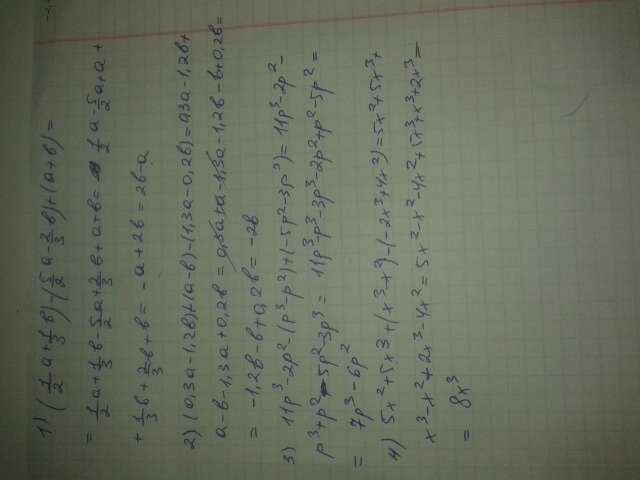 1) (1/2a+1/3b)-(5/2a-2/3b)+(a+b)=
= 1/2a+1/3b-5/2a+2/3b+a+b= 1/2a-5/2a+a+
+1/3b+2/3b+b= -a+2b=2b-a
2) (0,3a-1,2b)+(a-b)-(1,3a-0,2b)=0,3a-1,2b+
a-b-1,3a+0,2b=0,3a+a-1,3a-1,2b-b+0,2b=
= -1,2b-b+0,2b=-2b
3) 11p³-2p²-(p³-p²)+(-5p²-3p³)=11p³-2p²-
p³+p²-5p²-3p³= 11p³-p³-3p³-2p²+p²-5p²=
= 7p³-6p²
4) 5x²+5x³+(x³-x²)-(-2x³+4x²)=5x²+5x³+
x³-x²+2x³-4x²=5x²-x²-4x²+5x³+x³+2x³=
= 8x³